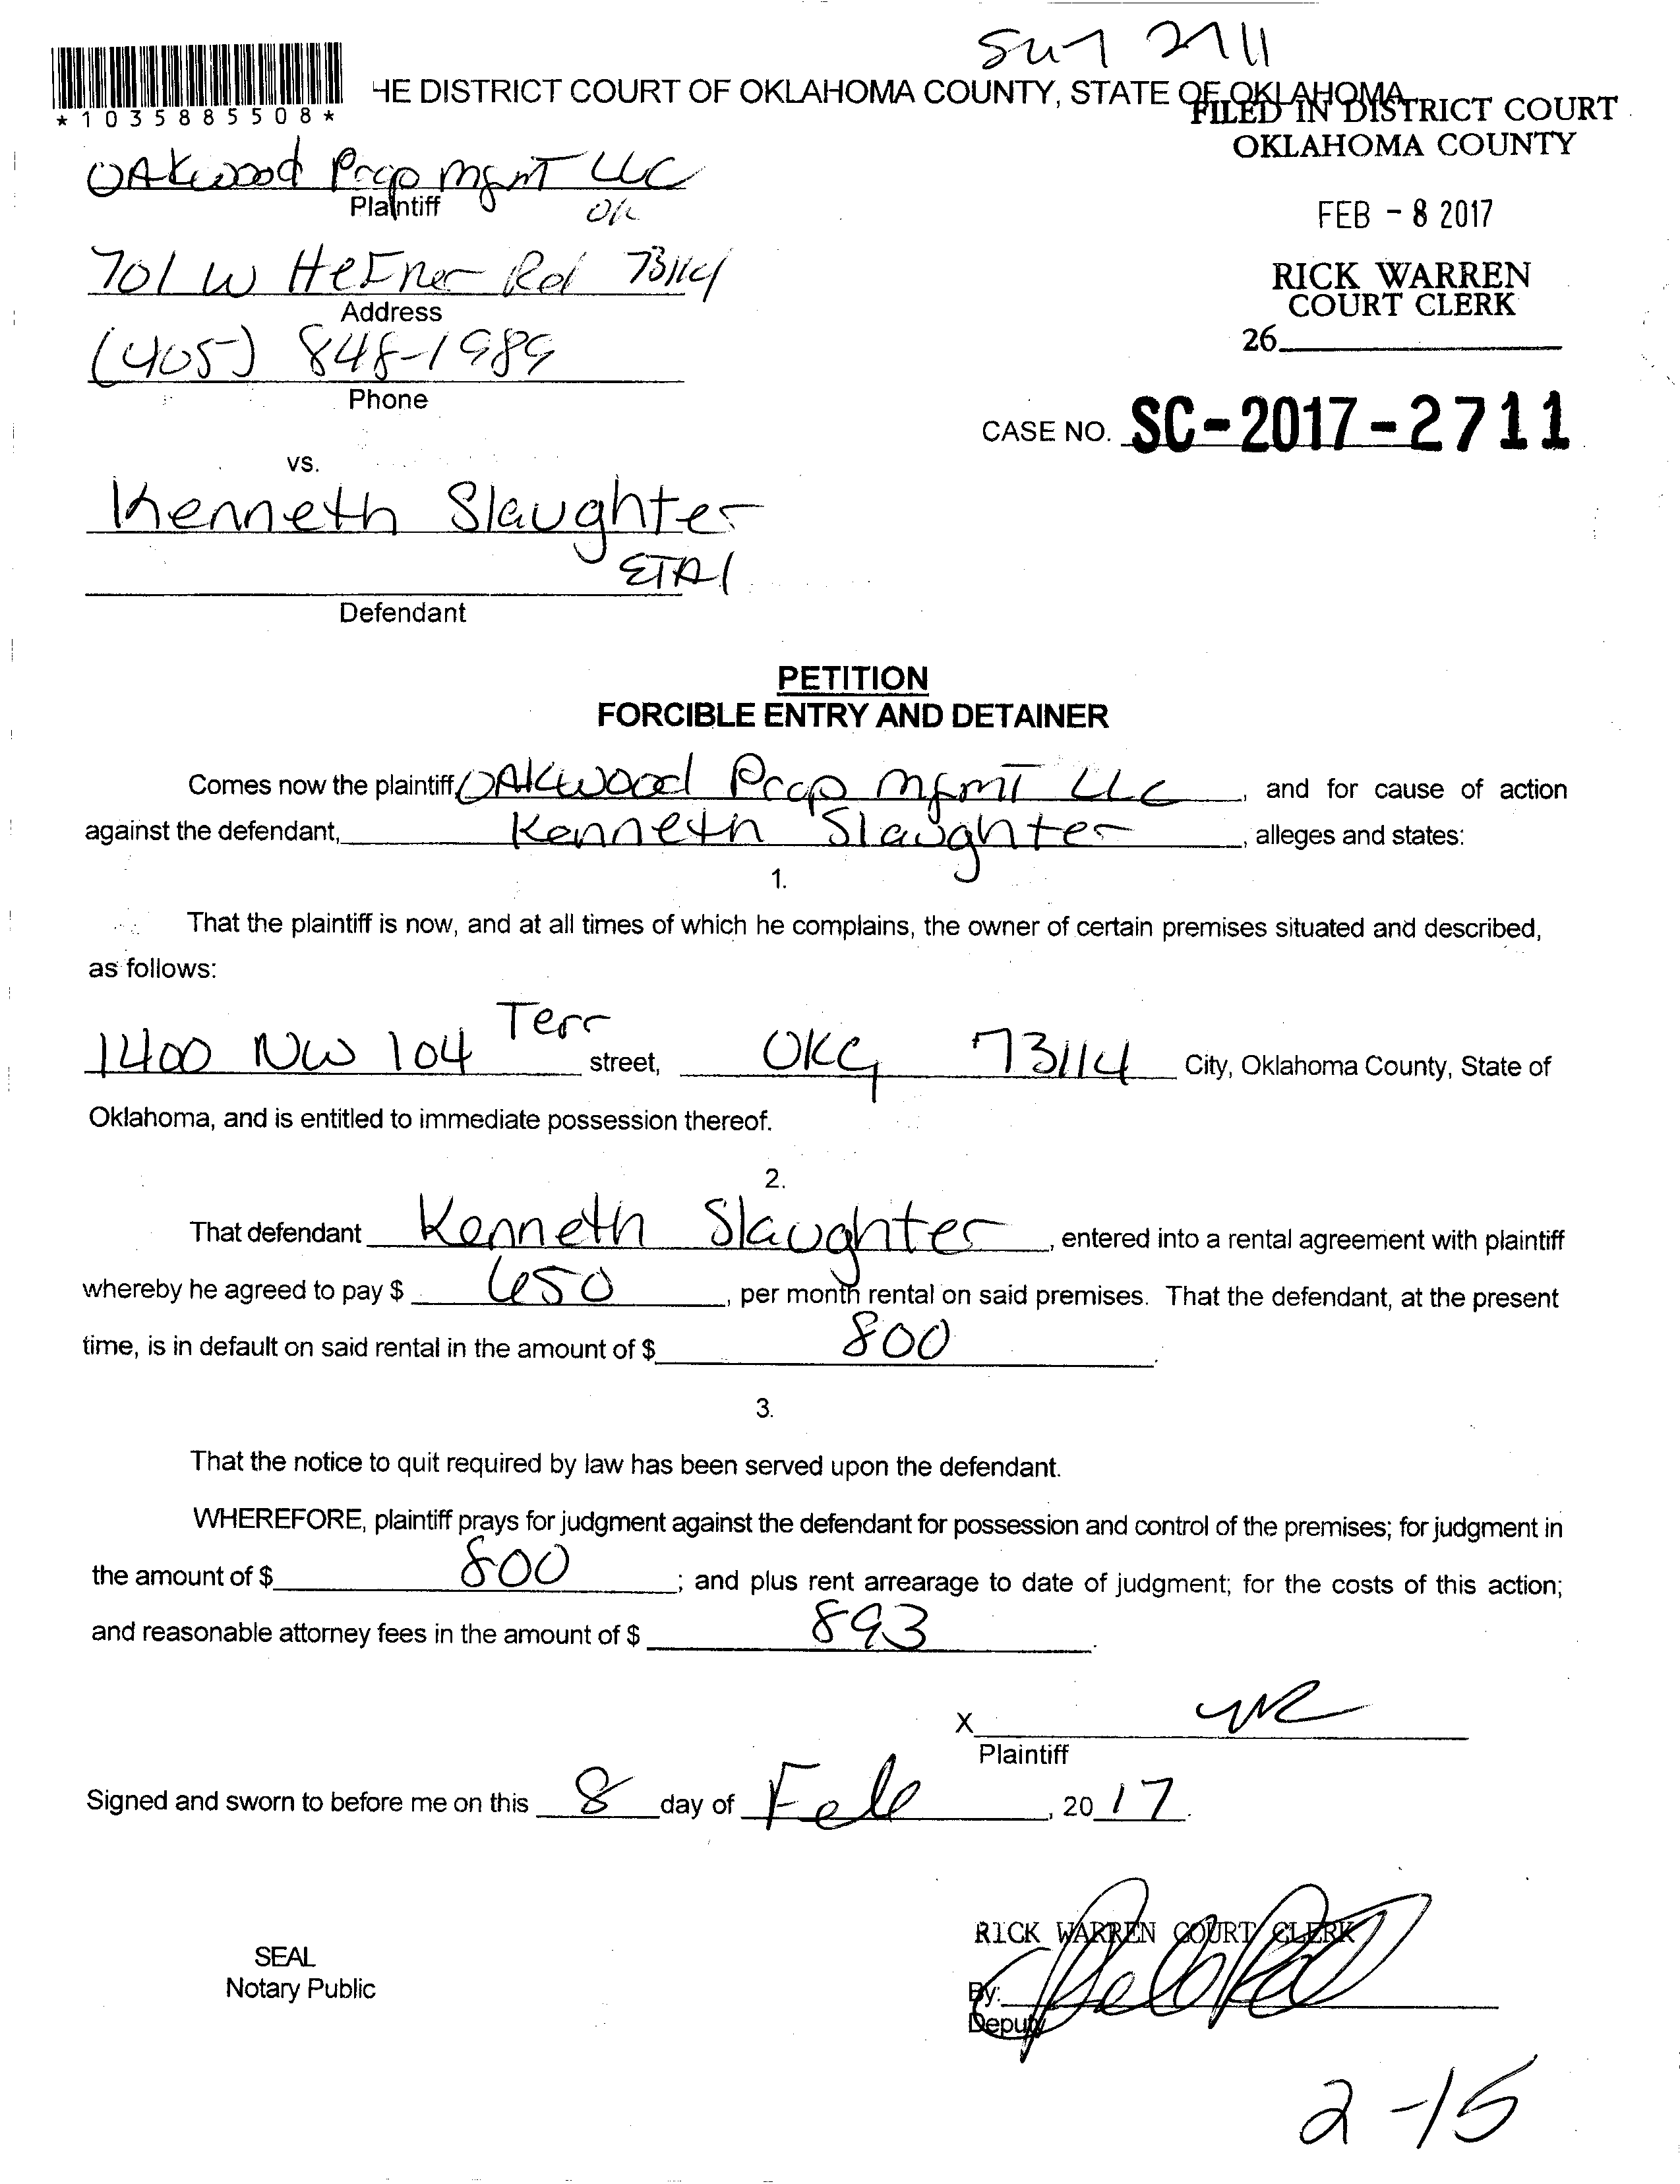 HE DISTRICT COURT OF OKLAHOMA COUNTY, STATE OF OKLAHOMA
*1035885508*
FILED IN DISTRICT COURT
OKLAHOMA COUNTY
FEB - 8 2017
RICK WARREN
COURT CLERK
26
OAkwood Prop mgmT LLC
Plaintiff
701 W HeFner Rd 73114
Address
(405) 848-1989
Phone
CASE NO. SC-2017-2711
vs.
Kenneth Slaughter
ETAl
Defendant
PETITION
FORCIBLE ENTRY AND DETAINER
Comes now the plaintiff, OAKwood Prop mgmT LLC, and for cause of action
against the defendant, Kenneth Slaughter, alleges and states:
1.
That the plaintiff is now, and at all times of which he complains, the owner of certain premises situated and described,
as follows:
1400 NW 104 Terr street, OKC, 73114 City, Oklahoma County, State of
Oklahoma, and is entitled to immediate possession thereof.
2.
That defendant Kenneth Slaughter, entered into a rental agreement with plaintiff
whereby he agreed to pay $ 650, per month rental on said premises. That the defendant, at the present
time, is in default on said rental in the amount of $ 800.
3.
That the notice to quit required by law has been served upon the defendant.
WHEREFORE, plaintiff prays for judgment against the defendant for possession and control of the premises; for judgment in
the amount of $ 800; and plus rent arrearage to date of judgment; for the costs of this action;
and reasonable attorney fees in the amount of $ 893.
X
Plaintiff
Signed and sworn to before me on this 8 day of Feb, 20 17.
RICK WARREN COURT CLERK
SEAL
Notary Public
By:
Deputy
2-15